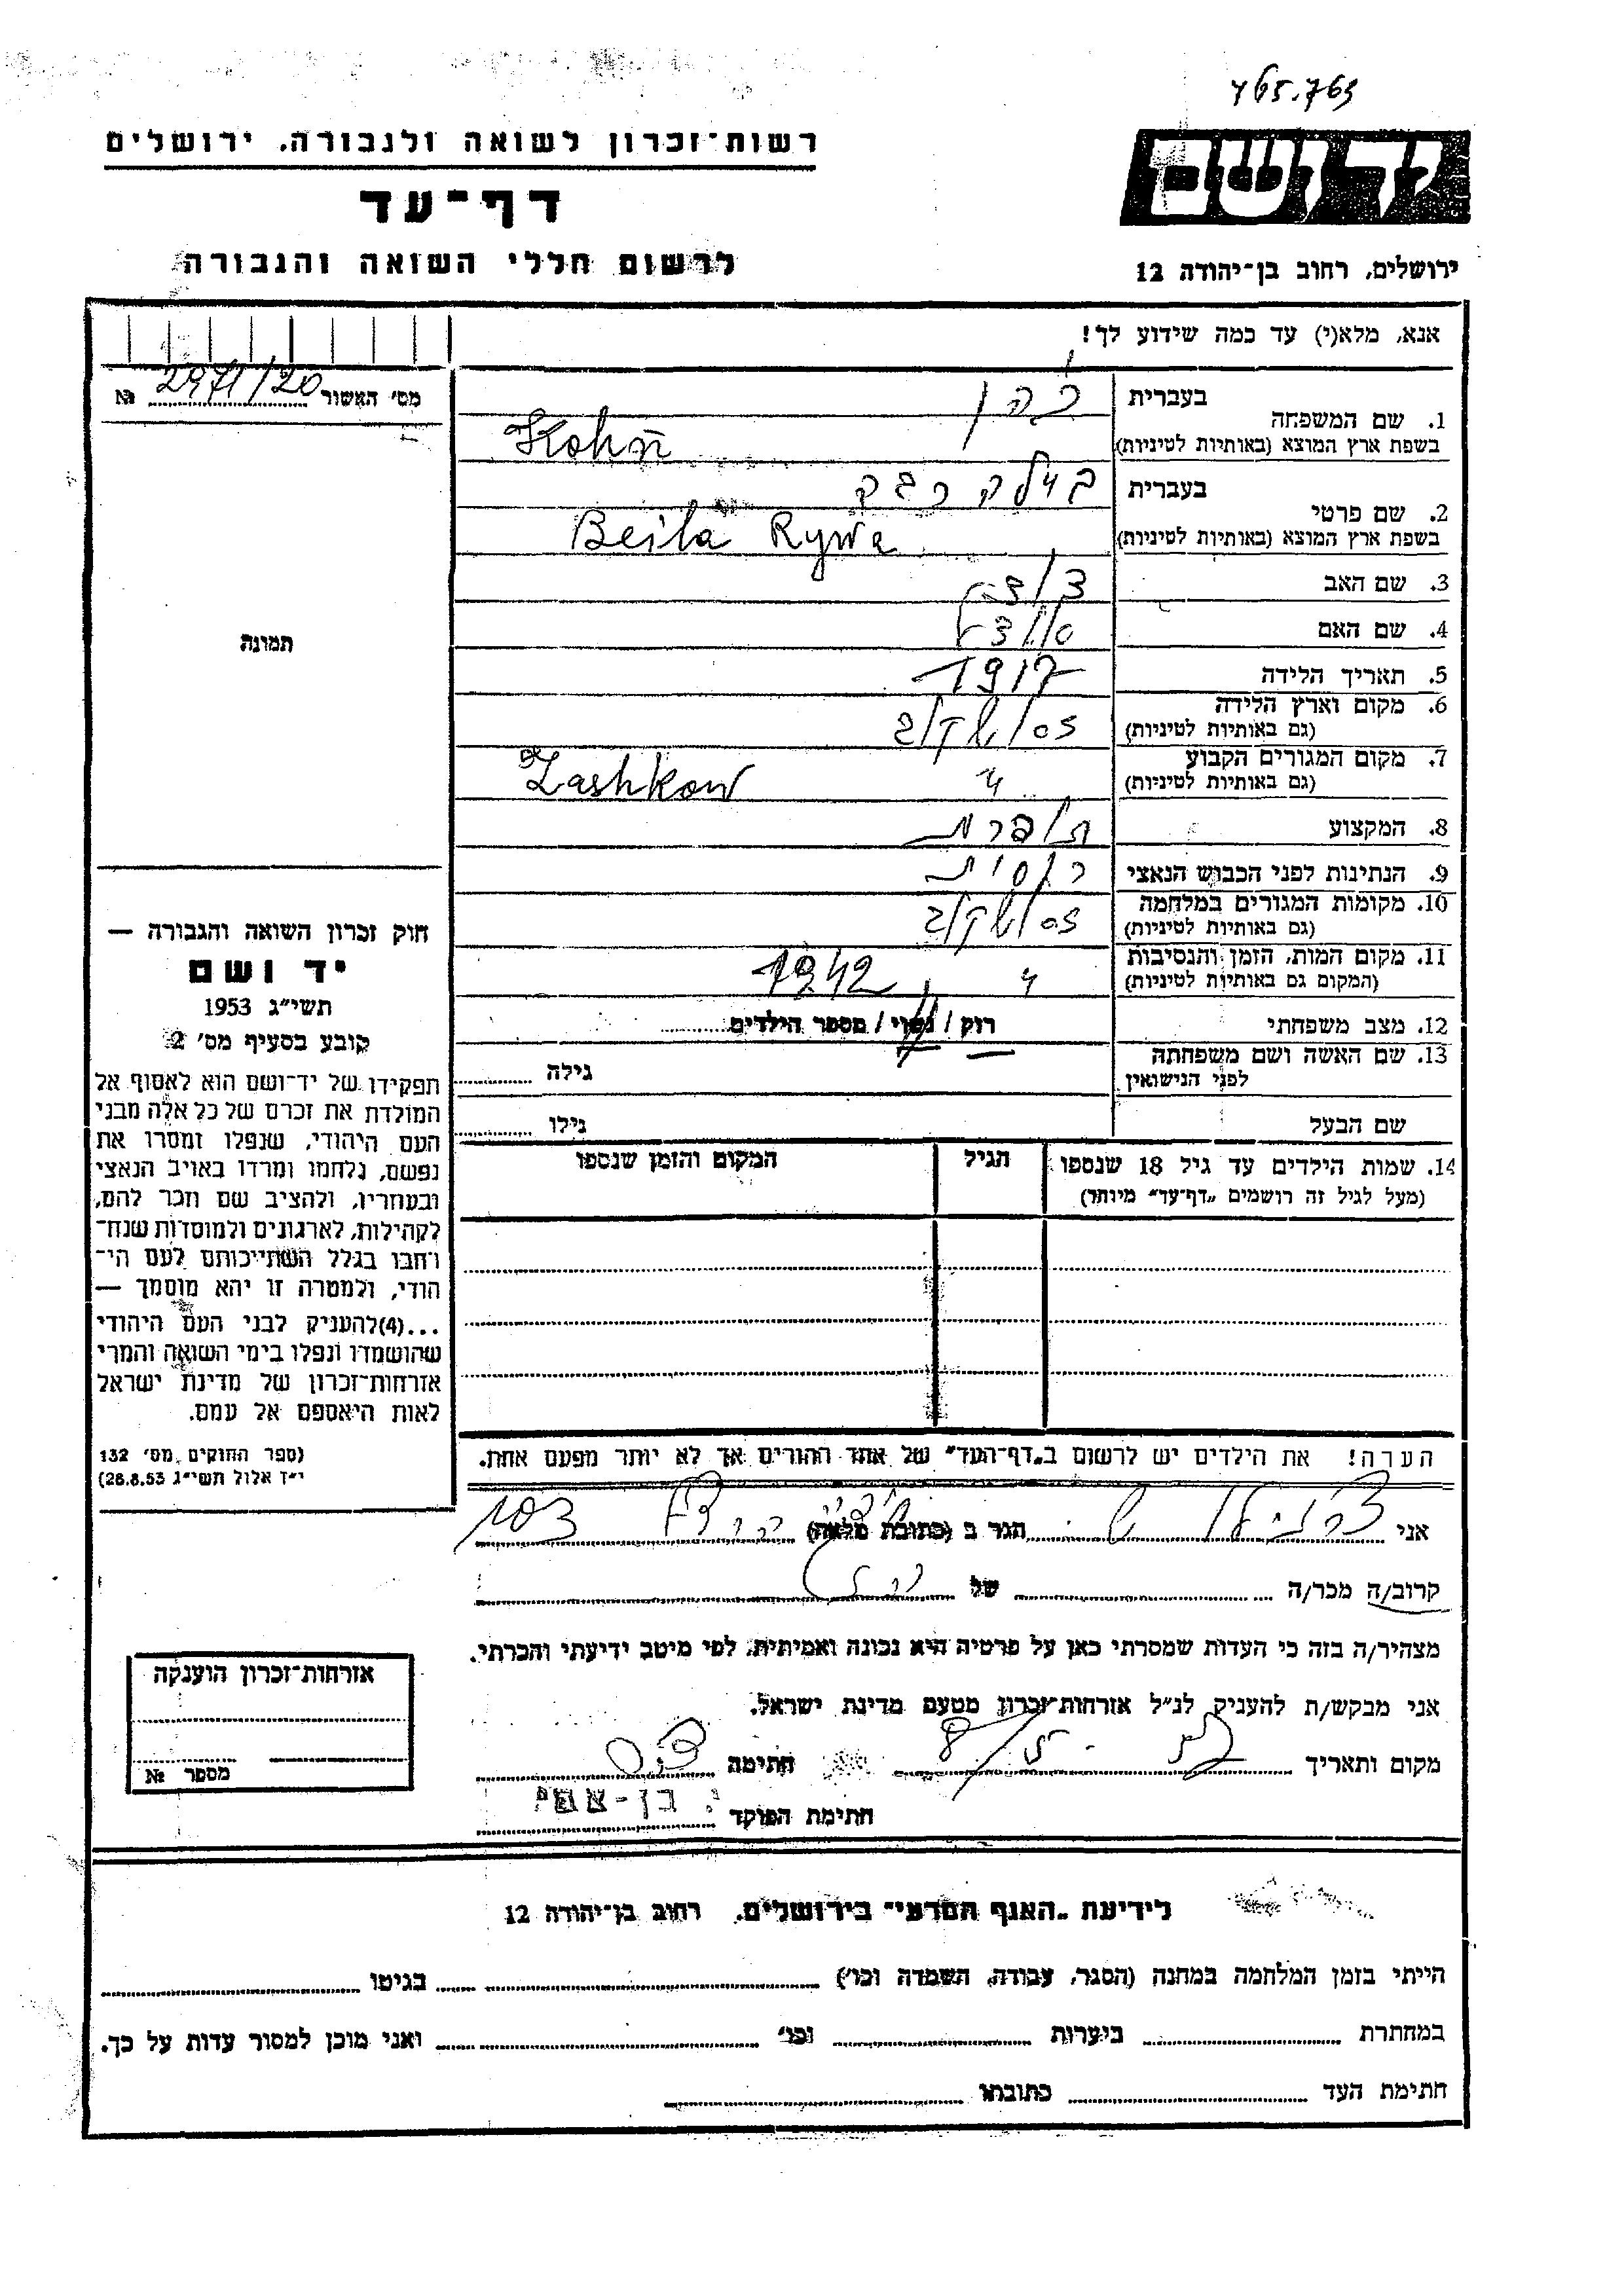 465.763
רשות־זכרון לשואה ולגבורה, ירושלים
דף־עד
לרשום חללי השואה והגבורה
יד ושם
ירושלים, רחוב בן־יהודה 12
אנא, מלא(י) עד כמה שידוע לך!
מס׳ האשור 2971/20 №
תמונה
1. שם המשפחה
בעברית כהן
בשפת ארץ המוצא (באותיות לטיניות) Kohn
2. שם פרטי
בעברית ביילה רבקה
בשפת ארץ המוצא (באותיות לטיניות) Beila Rywa
3. שם האב
4. שם האם
5. תאריך הלידה 1917
6. מקום וארץ הלידה
(גם באותיות לטיניות)
7. מקום המגורים הקבוע
(גם באותיות לטיניות) Zashkow
8. המקצוע תופרת
9. הנתינות לפני הכבוש הנאצי רוסית
10. מקומות המגורים במלחמה
(גם באותיות לטיניות)
11. מקום המות, הזמן והנסיבות
(המקום גם באותיות לטיניות) 1942
12. מצב משפחתי רוק / נשוי / מספר הילדים
13. שם האשה ושם משפחתה
לפני הנישואין גילה
שם הבעל גילו
14. שמות הילדים עד גיל 18 שנספו
(מעל לגיל זה רושמים „דף־עד״ מיוחד)
הגיל
המקום והזמן שנספו
חוק זכרון השואה והגבורה —
יד ושם
תשי״ג 1953
קובע בסעיף מס׳ 2
תפקידו של יד־ושם הוא לאסוף אל
המולדת את זכרם של כל אלה מבני
העם היהודי, שנפלו ומסרו את
נפשם, נלחמו ומרדו באויב הנאצי
ובעוזריו, ולהציב שם וזכר להם,
לקהילות, לארגונים ולמוסדות שנח־
רחבו בגלל השתייכותם לעם הי־
הודי, ולמטרה זו יהא מוסמך —
...(4)להעניק לבני העם היהודי
שהושמדו ונפלו בימי השואה והמרי
אזרחות־זכרון של מדינת ישראל
לאות היאספם אל עמם.
(ספר החוקים מס׳ 132
י״ז אלול תשי״ג 28.8.53)
הערה! את הילדים יש לרשום ב„דף־העד״ של אחד ההורים אך לא יותר מפעם אחת.
אני הגר ב (כתובת מלאה)
קרוב/ה מכר/ה של
מצהיר/ה בזה כי העדות שמסרתי כאן על פרטיה היא נכונה ואמיתית, לפי מיטב ידיעתי והכרתי.
אני מבקש/ת להעניק לנ״ל אזרחות־זכרון מטעם מדינת ישראל.
מקום ותאריך חתימה
חתימת הפוקד
אזרחות־זכרון הוענקה
מספר №
לידיעת „האגף המדעי״ בירושלים, רחוב בן־יהודה 12
הייתי בזמן המלחמה במחנה (הסגר, עבודה, השמדה וכו׳) בגיטו
במחתרת ביערות וכו׳ ואני מוכן למסור עדות על כך.
חתימת העד כתובתו